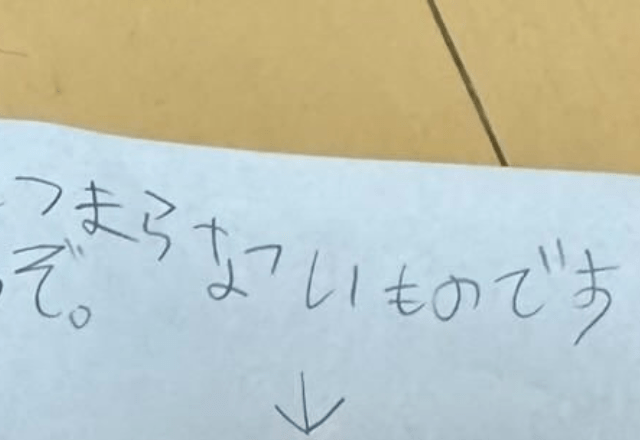 つまらないものです
ぞ。